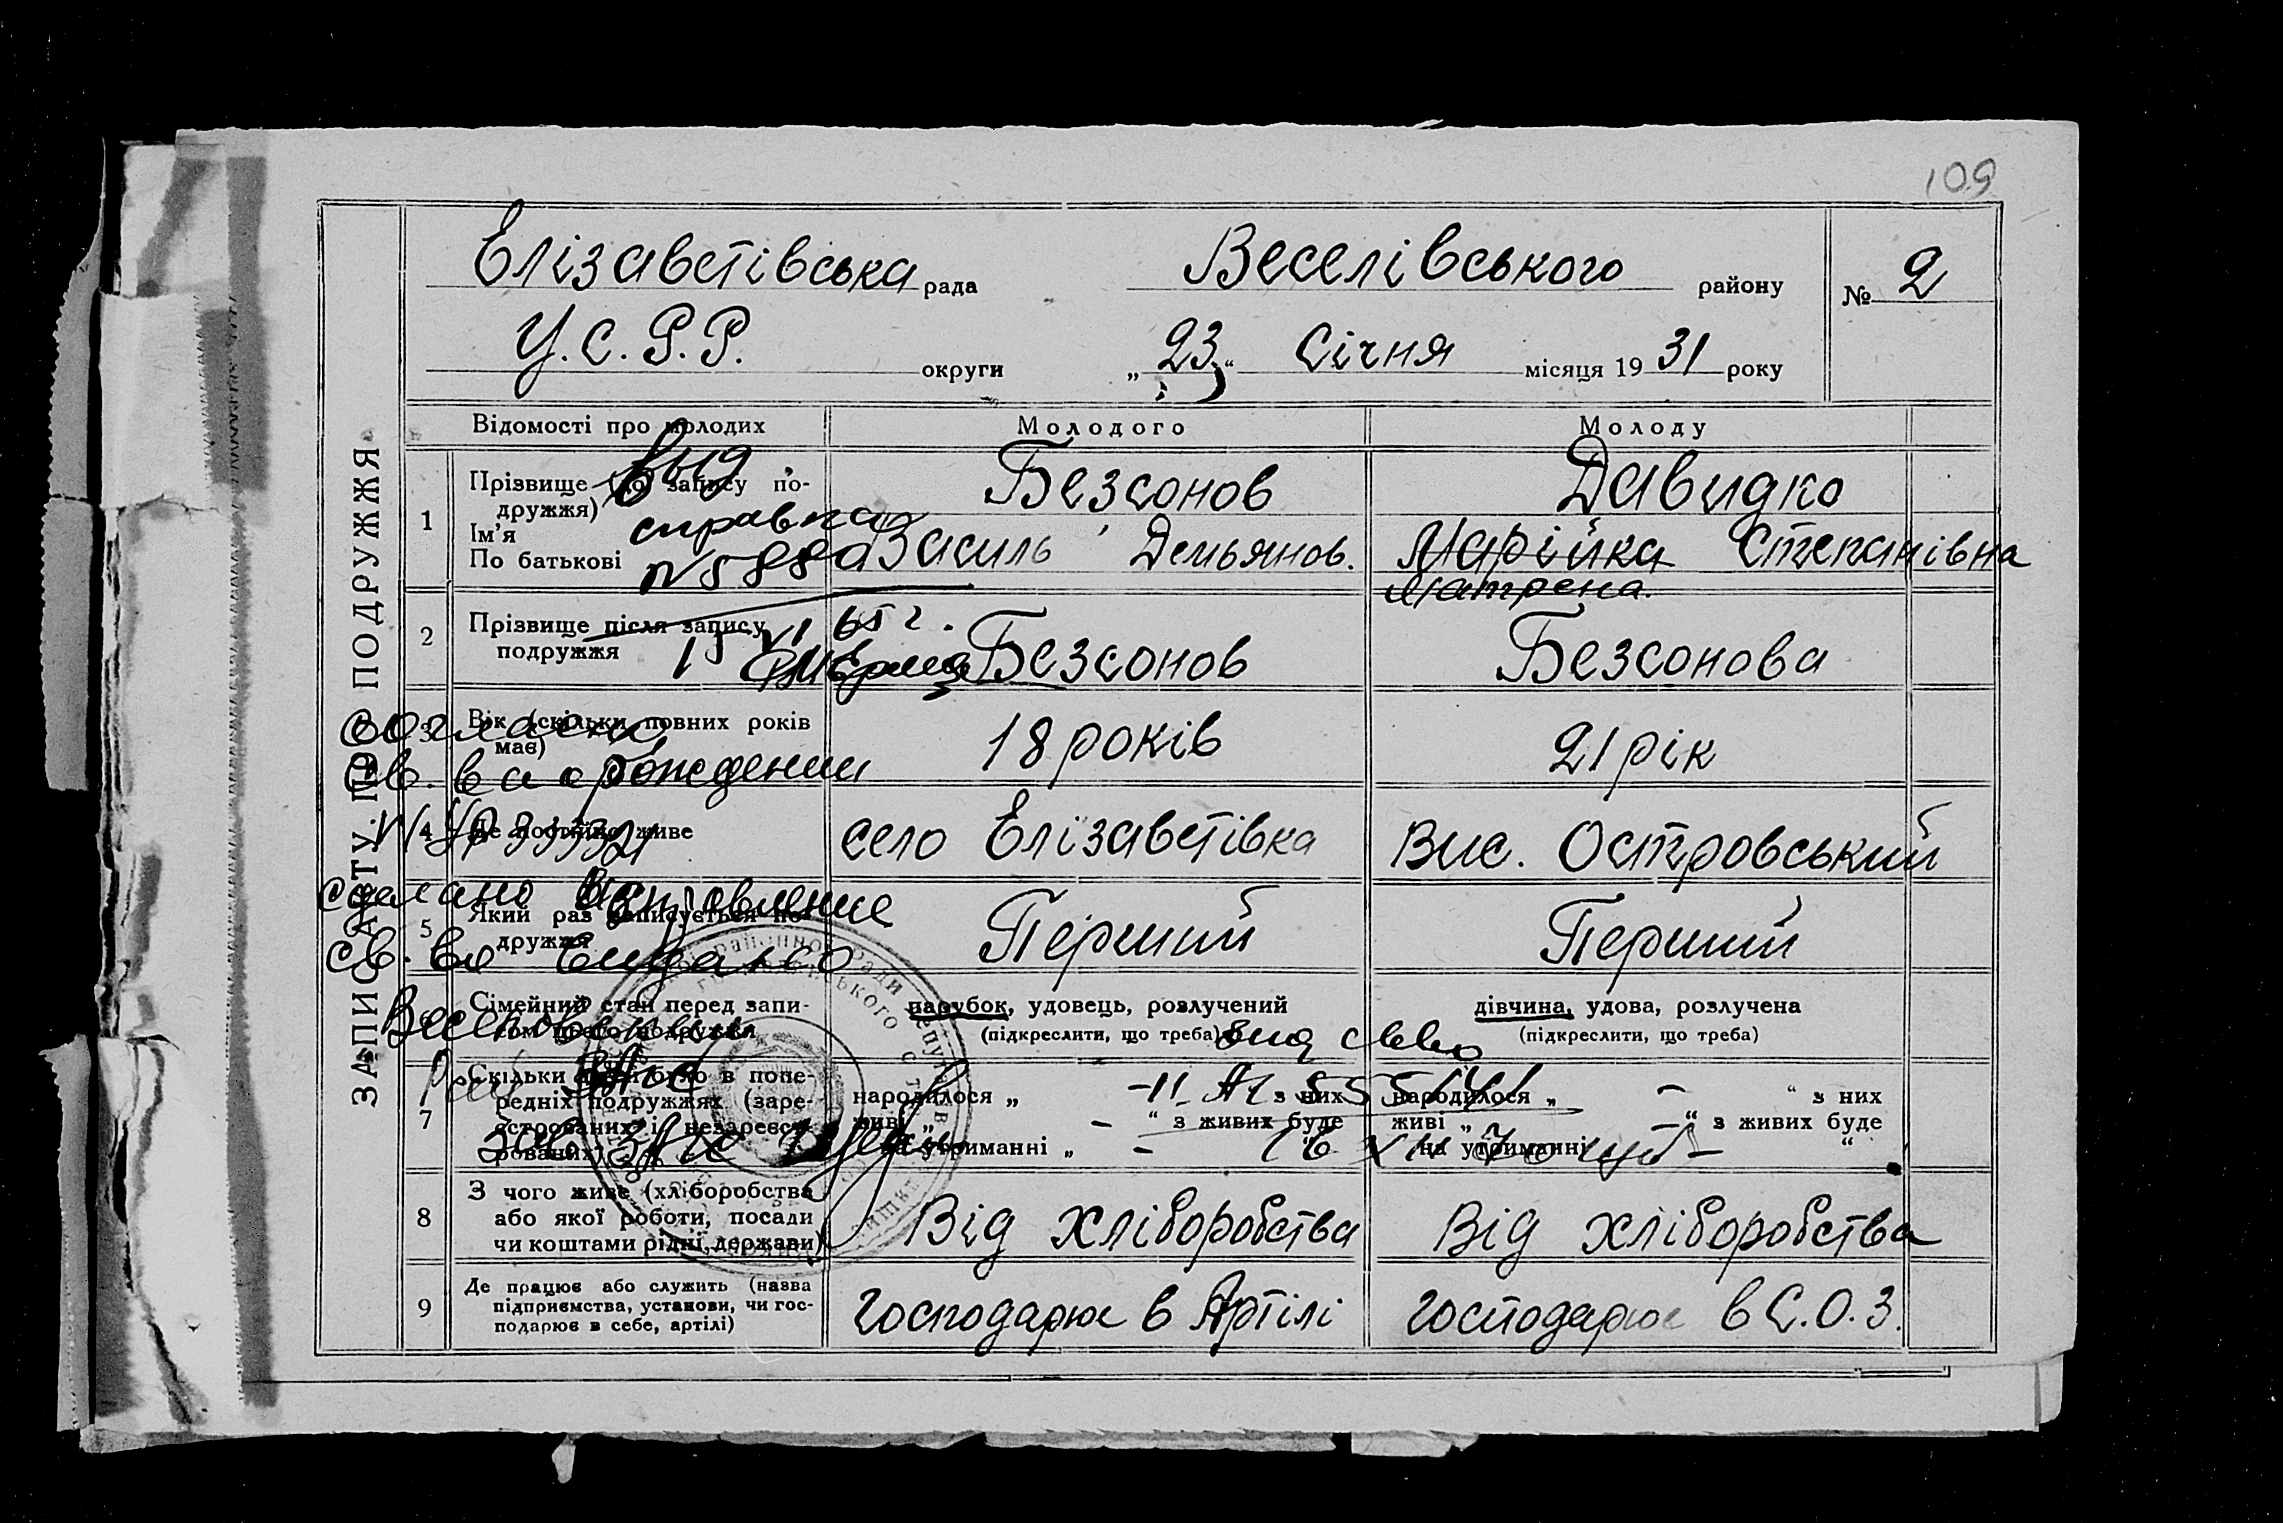 109
Елізаветівська рада Веселівського району № 2
У.С.Р.Р. округи „23“ Січня місяця 1931 року
ЗАПИС АКТУ ПРО ПОДРУЖЖЯ
Відомості про молодих Молодого Молоду
1 Прізвище (до запису по-
дружжя) Безсонов Давидко
Ім’я
По батькові Василь Демьянов. Марійка Степанівна
Матрена.
выд
справка
N 588
15 VI 65 г.
2 Прізвище після запису
подружжя Безсонов Безсонова
3 Вік (скільки повних років
має) 18 років 21 рік
согласно
св. ва о рождении
4 Де постійно живе село Елізаветівка Вис. Островський
сделано исправление
5 Який раз записується по-
дружжя Перший Перший
св. во выдано
6 Сімейний стан перед запи-
сом цього подружжя
парубок, удовець, розлучений дівчина, удова, розлучена
(підкреслити, що треба) (підкреслити, що треба)
Веселовским
ЗАГС
7 Скільки дітей було в попе-
редніх подружжях (заре-
єстрованих і незареєст-
рованих)
народилося „ – “ з них народилося „ – “ з них
живі „ – “ з живих буде живі „ – “ з живих буде
на утриманні „ – на утриманні – “
зав ЗАГС
8 З чого живе (хліборобства
або якої роботи, посади
чи коштами рідні, держави) Від хліборобства Від хліборобства
9 Де працює або служить (назва
підприємства, установи, чи гос-
подарює в себе, артілі) господарює в Артілі господарює в С.О.З.